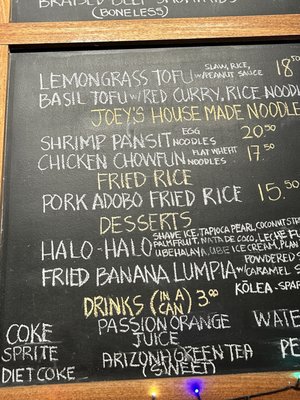 BRAISED BEEF SHORT RIBS
(BONELESS)
LEMONGRASS TOFU SLAW, RICE, W/PEANUT SAUCE 18
BASIL TOFU W/RED CURRY, RICE NOOD
JOEY'S HOUSE MADE NOODLE
SHRIMP PANSIT EGG NOODLES 20.50
CHICKEN CHOWFUN FLAT WHEAT NOODLES 17.50
FRIED RICE
PORK ADOBO FRIED RICE 15.50
DESSERTS
HALO-HALO SHAVE ICE, TAPIOCA PEARL, COCONUT STR
PALM FRUIT, NATA DE COCO, LECHE FL
UBE HALAYA, UBE ICE CREAM, PLAN
FRIED BANANA LUMPIA POWDERED S
W/CARAMEL S
KŌLEA-SPAR
DRINKS (IN A CAN) 3.00
COKE PASSION ORANGE JUICE WATE
SPRITE
DIET COKE ARIZONA GREEN TEA (SWEET) PE